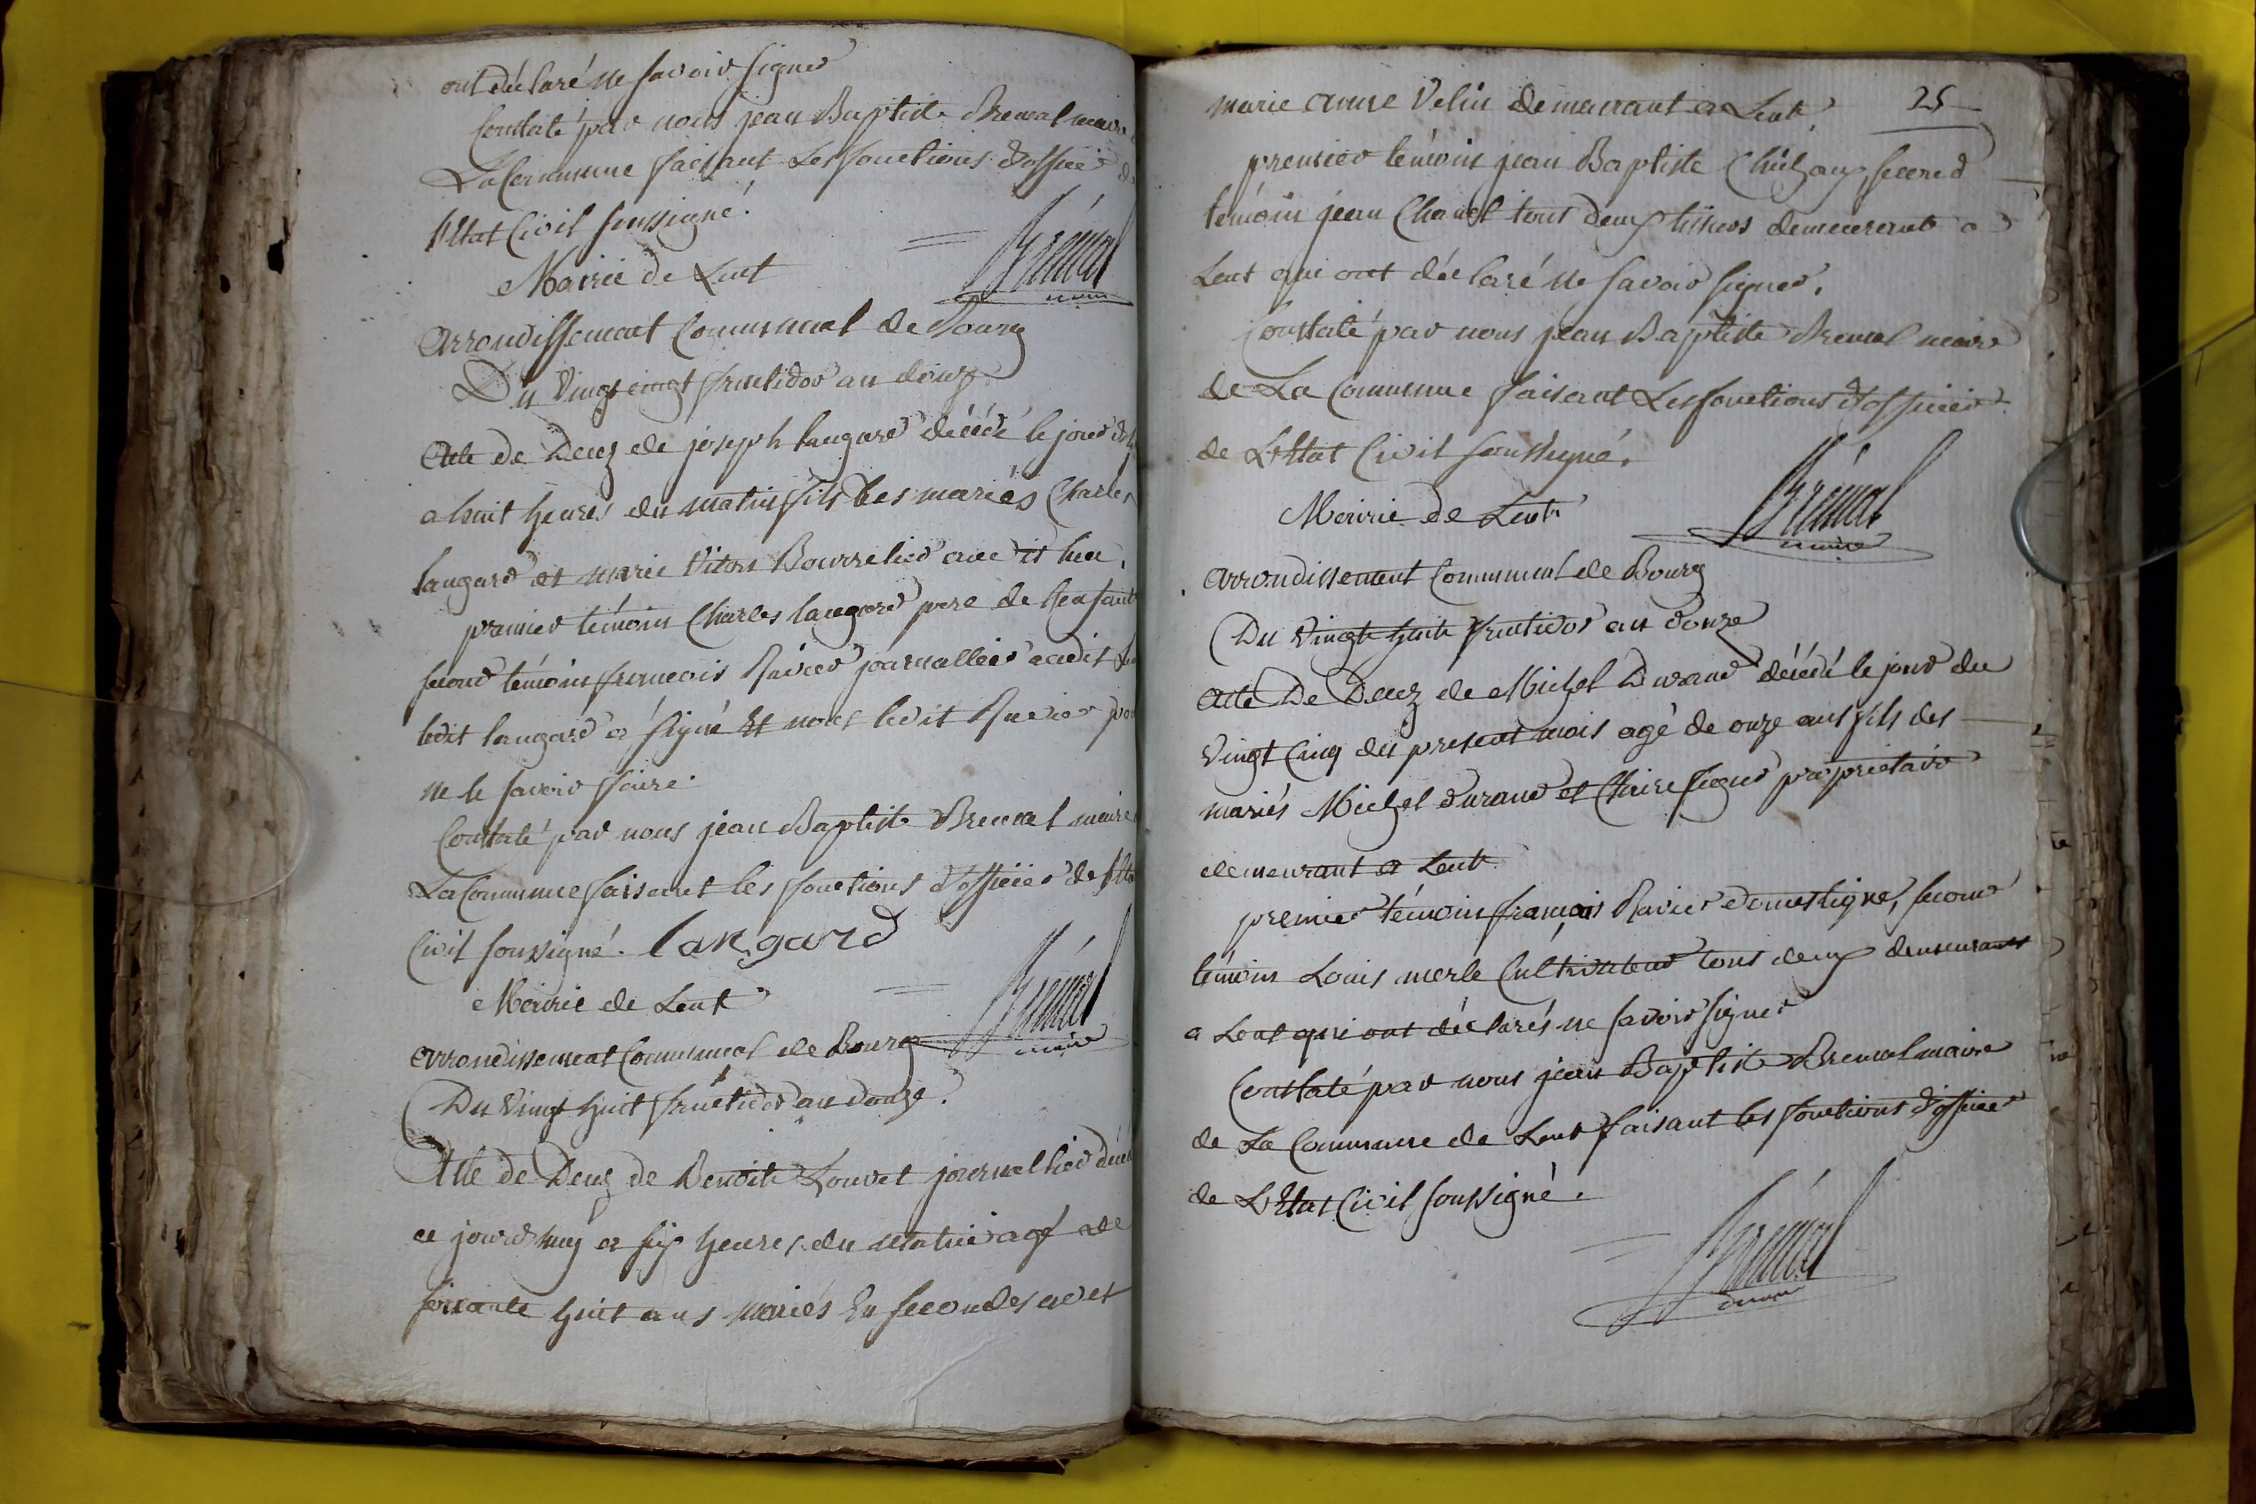 ont déclaré ne savoir signer
Constaté par nous jean Baptiste Bremal maire
La Commune faisant Les fonctions d'officier de
l'Etat Civil soussigné.
Brémal
maire
Mairie de Lent
arrondissement Communal de Bourg
Du vingt cinq fructidor an douze
Acte de Decez de joseph langard décédé le jour
a huit heures du matin fils des mariés Charles
langard et marie Bourrelier au dit lieu.
premier témoin Charles langard pere de
second témoin francois Ravier journallier audit
ledit langard a signé Et non ledit Ravier pour
ne le savoir faire.
Constaté par nous jean Baptiste Bremal maire
La Commune faisant les fonctions d'officier de
Civil soussigné. langard
Brémal
maire
Mairie de Lent
arrondissement Communal de Bourg
Du vingt huit fructidor an douze.
Acte de Decez de Benoite Louvet journallier
ce jourd'huy a six heures du matin agé de
soixante huit ans mariés En secondes avec
25
marie anne Velin demeurant a Lent
premier témoin jean Baptiste second
temoin jean Chanel tous deux demeurant a
Lent qui ont déclaré ne savoir signer.
Constaté par nous jean Baptiste Bremal maire
de La Commune faisant Les fonctions d'officier
de L'Etat Civil soussigné.
Brémal
maire
Mairie de Lent
arrondissement Communal de Bourg
Du vingt huit fructidor an douze
acte De Decez de Michel Durand décédé le jour du
vingt Cinq du present mois agé de onze ans fils des
mariés Michel durand et Claire proprietaire
demeurant a Lent
premier témoin françois Ravier domestique, second
témoin Louis merle Cultivateur tous deux demeurants
a Lent qui ont déclarés ne savoir signer
Constaté par nous jean Baptiste Bremal maire
de La Commune de Lent faisant les fonctions d'officier
de L'Etat Civil soussigné.
Brémal
maire